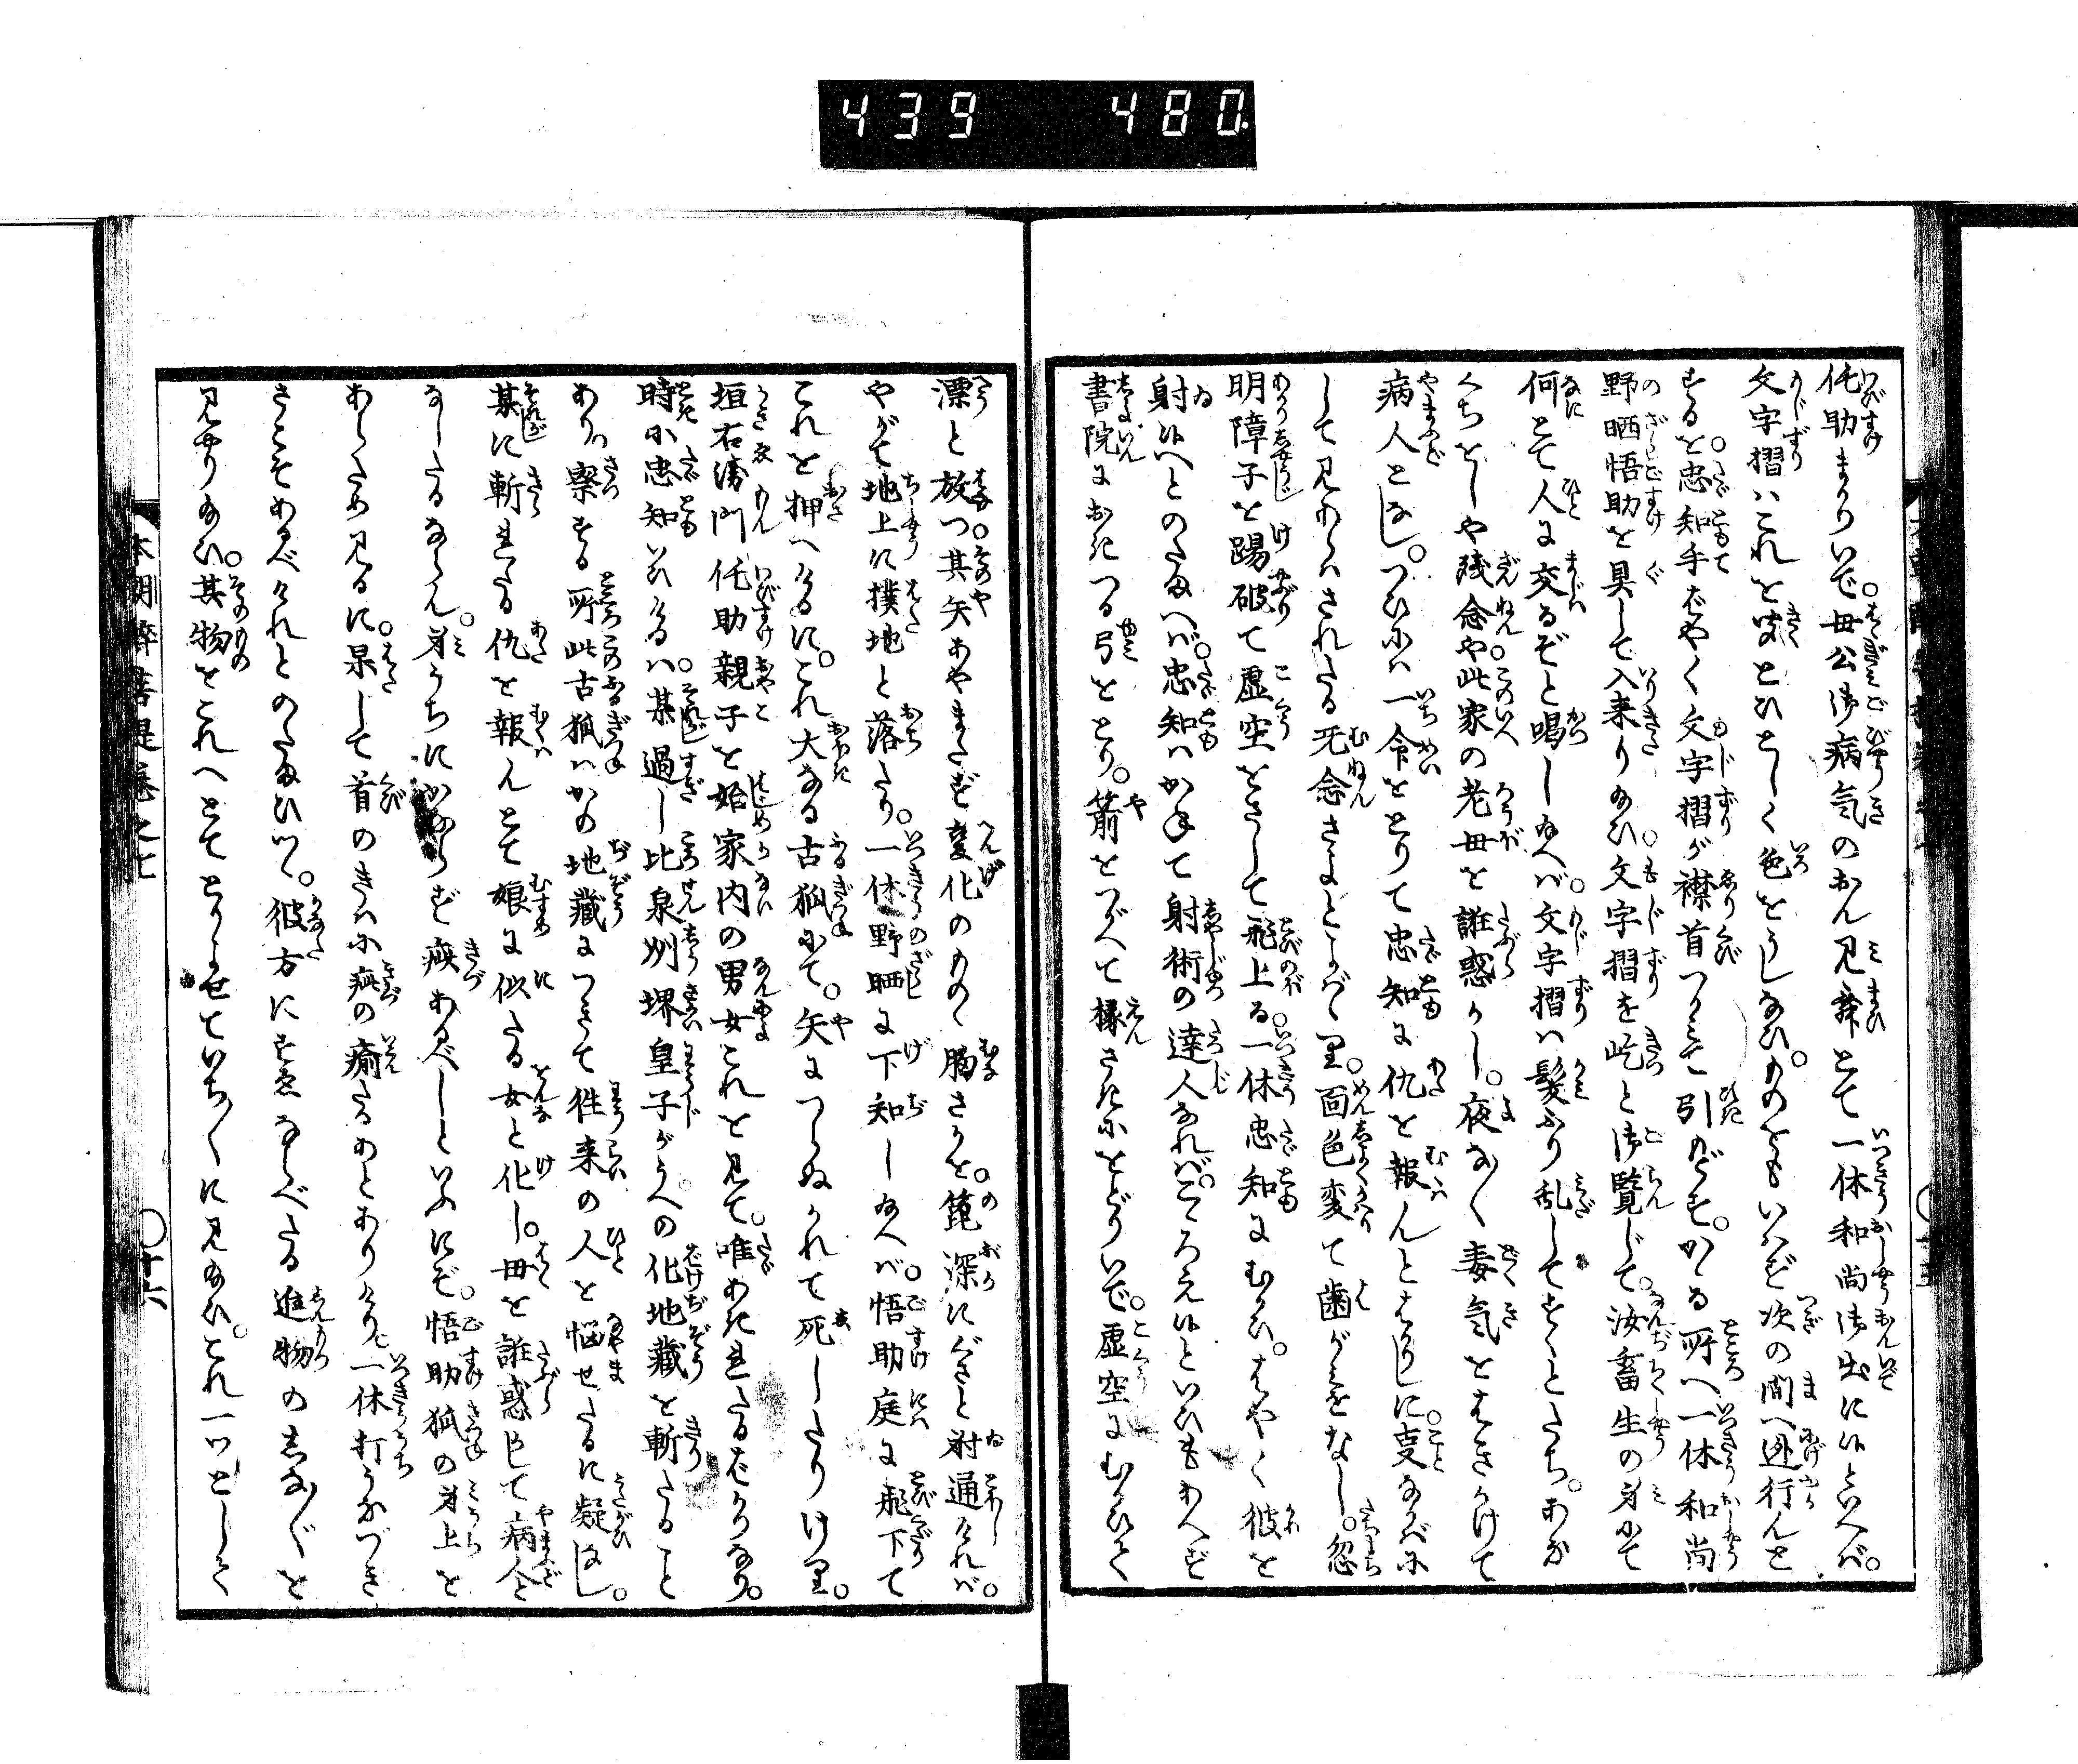 439 480
侘助まゐりいで。母公御病気のおん見舞とて一休和尚御出に候といへば。
文字摺はこれを聞とひとしく色をうしなひ。ものをもいはず次の間へ逃行んと
するを。忠知手ばやく文字摺が襟首つかみて引のばす。かゝる所へ一休和尚
野晒悟助を具して入来り給ひ。文字摺を屹と御覧じて。汝畜生の身にて
何とて人に交るぞと喝し給へば。文字摺は髪ふり乱してすくとたち。あな
くちをしや残念や。此家の老母を誑惑かし。夜な〳〵毒気をはきかけて
病人となし。つひには一命をとりて忠知に仇を報んとはかりしに。支なかばに
して見あらはされたる无念さよとよばゝり。面色変て歯がみをなし。忽
明障子を踢破て虚空をさして飛上る。一休忠知にむかひ。はやく彼を
射候へとのたまへば。忠知はかねて射術の達人なれば。こゝろえ候といひもあへず
書院におきつる弓をとり。箭をつがへて椽さきにをどりいで。虚空にむかひて
漂と放つ。其矢あやまたず変化のものゝ胸さかを。篦深にぐさと射通ければ。
やがて地上に撲地と落たり。一休野晒に下知し給へば。悟助庭に飛下て
これを押へけるに。これ大なる古狐にて。矢につらぬかれて死したりけり。
垣右衛門侘助親子を始家内の男女これを見て。唯あきれたるばかりなり。
時に忠知いひけるは。某過し比泉州堺皇子がうへの化地蔵を斬たること
あり。察する所此古狐はかの地蔵につきて往来の人を悩せたるに疑なし。
某に斬れたる仇を報んとて娘に似たる女と化し。母を誑惑して病人と
なしたるならん。身うちにかならず疵あるべしといふにぞ。悟助狐の身上を
あらため見るに。果して首のきはに疵の瘉たるあとありけり。一休打うなづき
さこそあるべけれとのたまひつゝ。彼方にすゑならべたる進物のしな〴〵を
見やり給ひ。其物をこれへとてとりよせていち〳〵に見給ひ。これ一ツとして
本朝酔菩提巻之七
〇十六